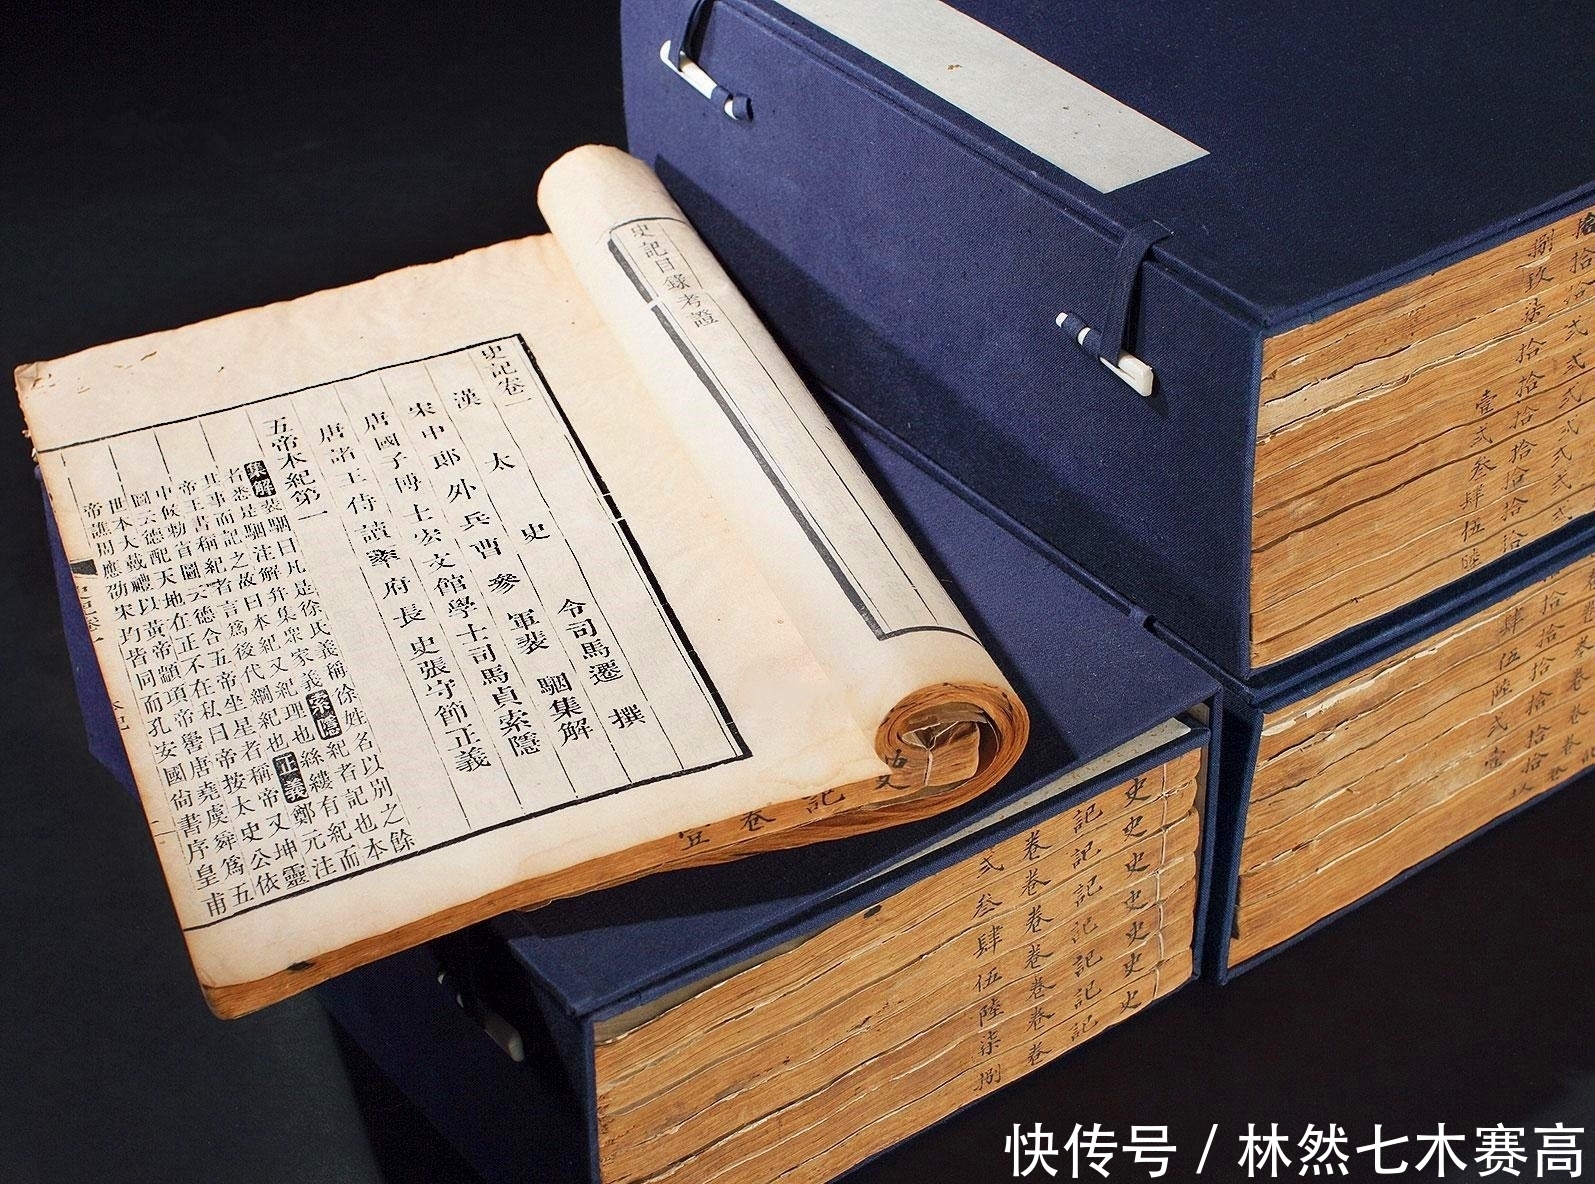 史記目錄考證
史記卷一
漢太史令司馬遷撰
宋中郎外兵曹參軍裴駰集解
唐國子博士宏文館學士司馬貞索隱
唐諸王侍讀率府長史張守節正義
五帝本紀第一
集解裴駰曰凡是徐氏義稱徐姓名以別之餘
者悉是駰注解并集眾家義索隱紀者記也本
其事而記之故曰本紀又紀理也絲縷有紀而
帝王書稱紀者言為後代綱紀也正義鄭元注
中候勑省圖云德合五帝坐星者稱帝又坤靈
圖云德配天地在正不在私曰帝按太史公依
世本大戴禮以黃帝顓頊帝嚳唐堯虞舜為五
帝譙周應劭宋均皆同而孔安國尚書序皇甫
史記卷壹
史記卷弍
史記卷叁
史記卷肆
史記卷伍
史記卷陸
史記卷柒
史記卷捌
快传号 / 林然七木赛高